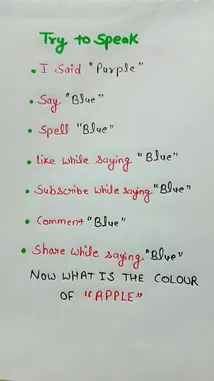 Try to Speak
• I Said "Purple"
• Say "Blue"
• Spell "Blue"
• Like while saying "Blue"
• Subscribe while saying "Blue"
• Comment "Blue"
• Share while saying "Blue"
NOW WHAT IS THE COLOUR
OF "APPLE"